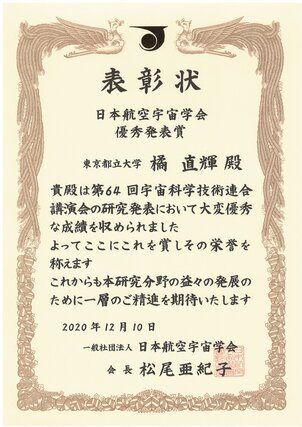 表彰状
日本航空宇宙学会
優秀発表賞
東京都立大学 橘 直輝 殿
貴殿は第64回宇宙科学技術連合
講演会の研究発表において大変優秀
な成績を収められました
よってここにこれを賞しその栄誉を
称えます
これからも本研究分野の益々の発展の
ために一層のご精進を期待いたします
2020年12月10日
一般社団法人 日本航空宇宙学会
会長 松尾亜紀子